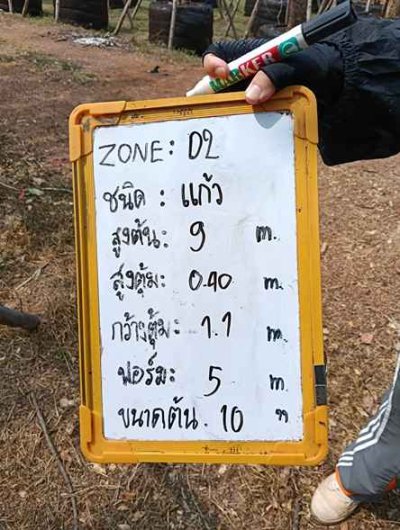 MARKER
ZONE: D2
ชนิด : แก้ว
สูงต้น: 9 m.
สูงตุ้ม: 0.40 m.
กว้างตุ้ม: 1.1 m.
ฟอร์ม: 5 m
ขนาดต้น. 10 "